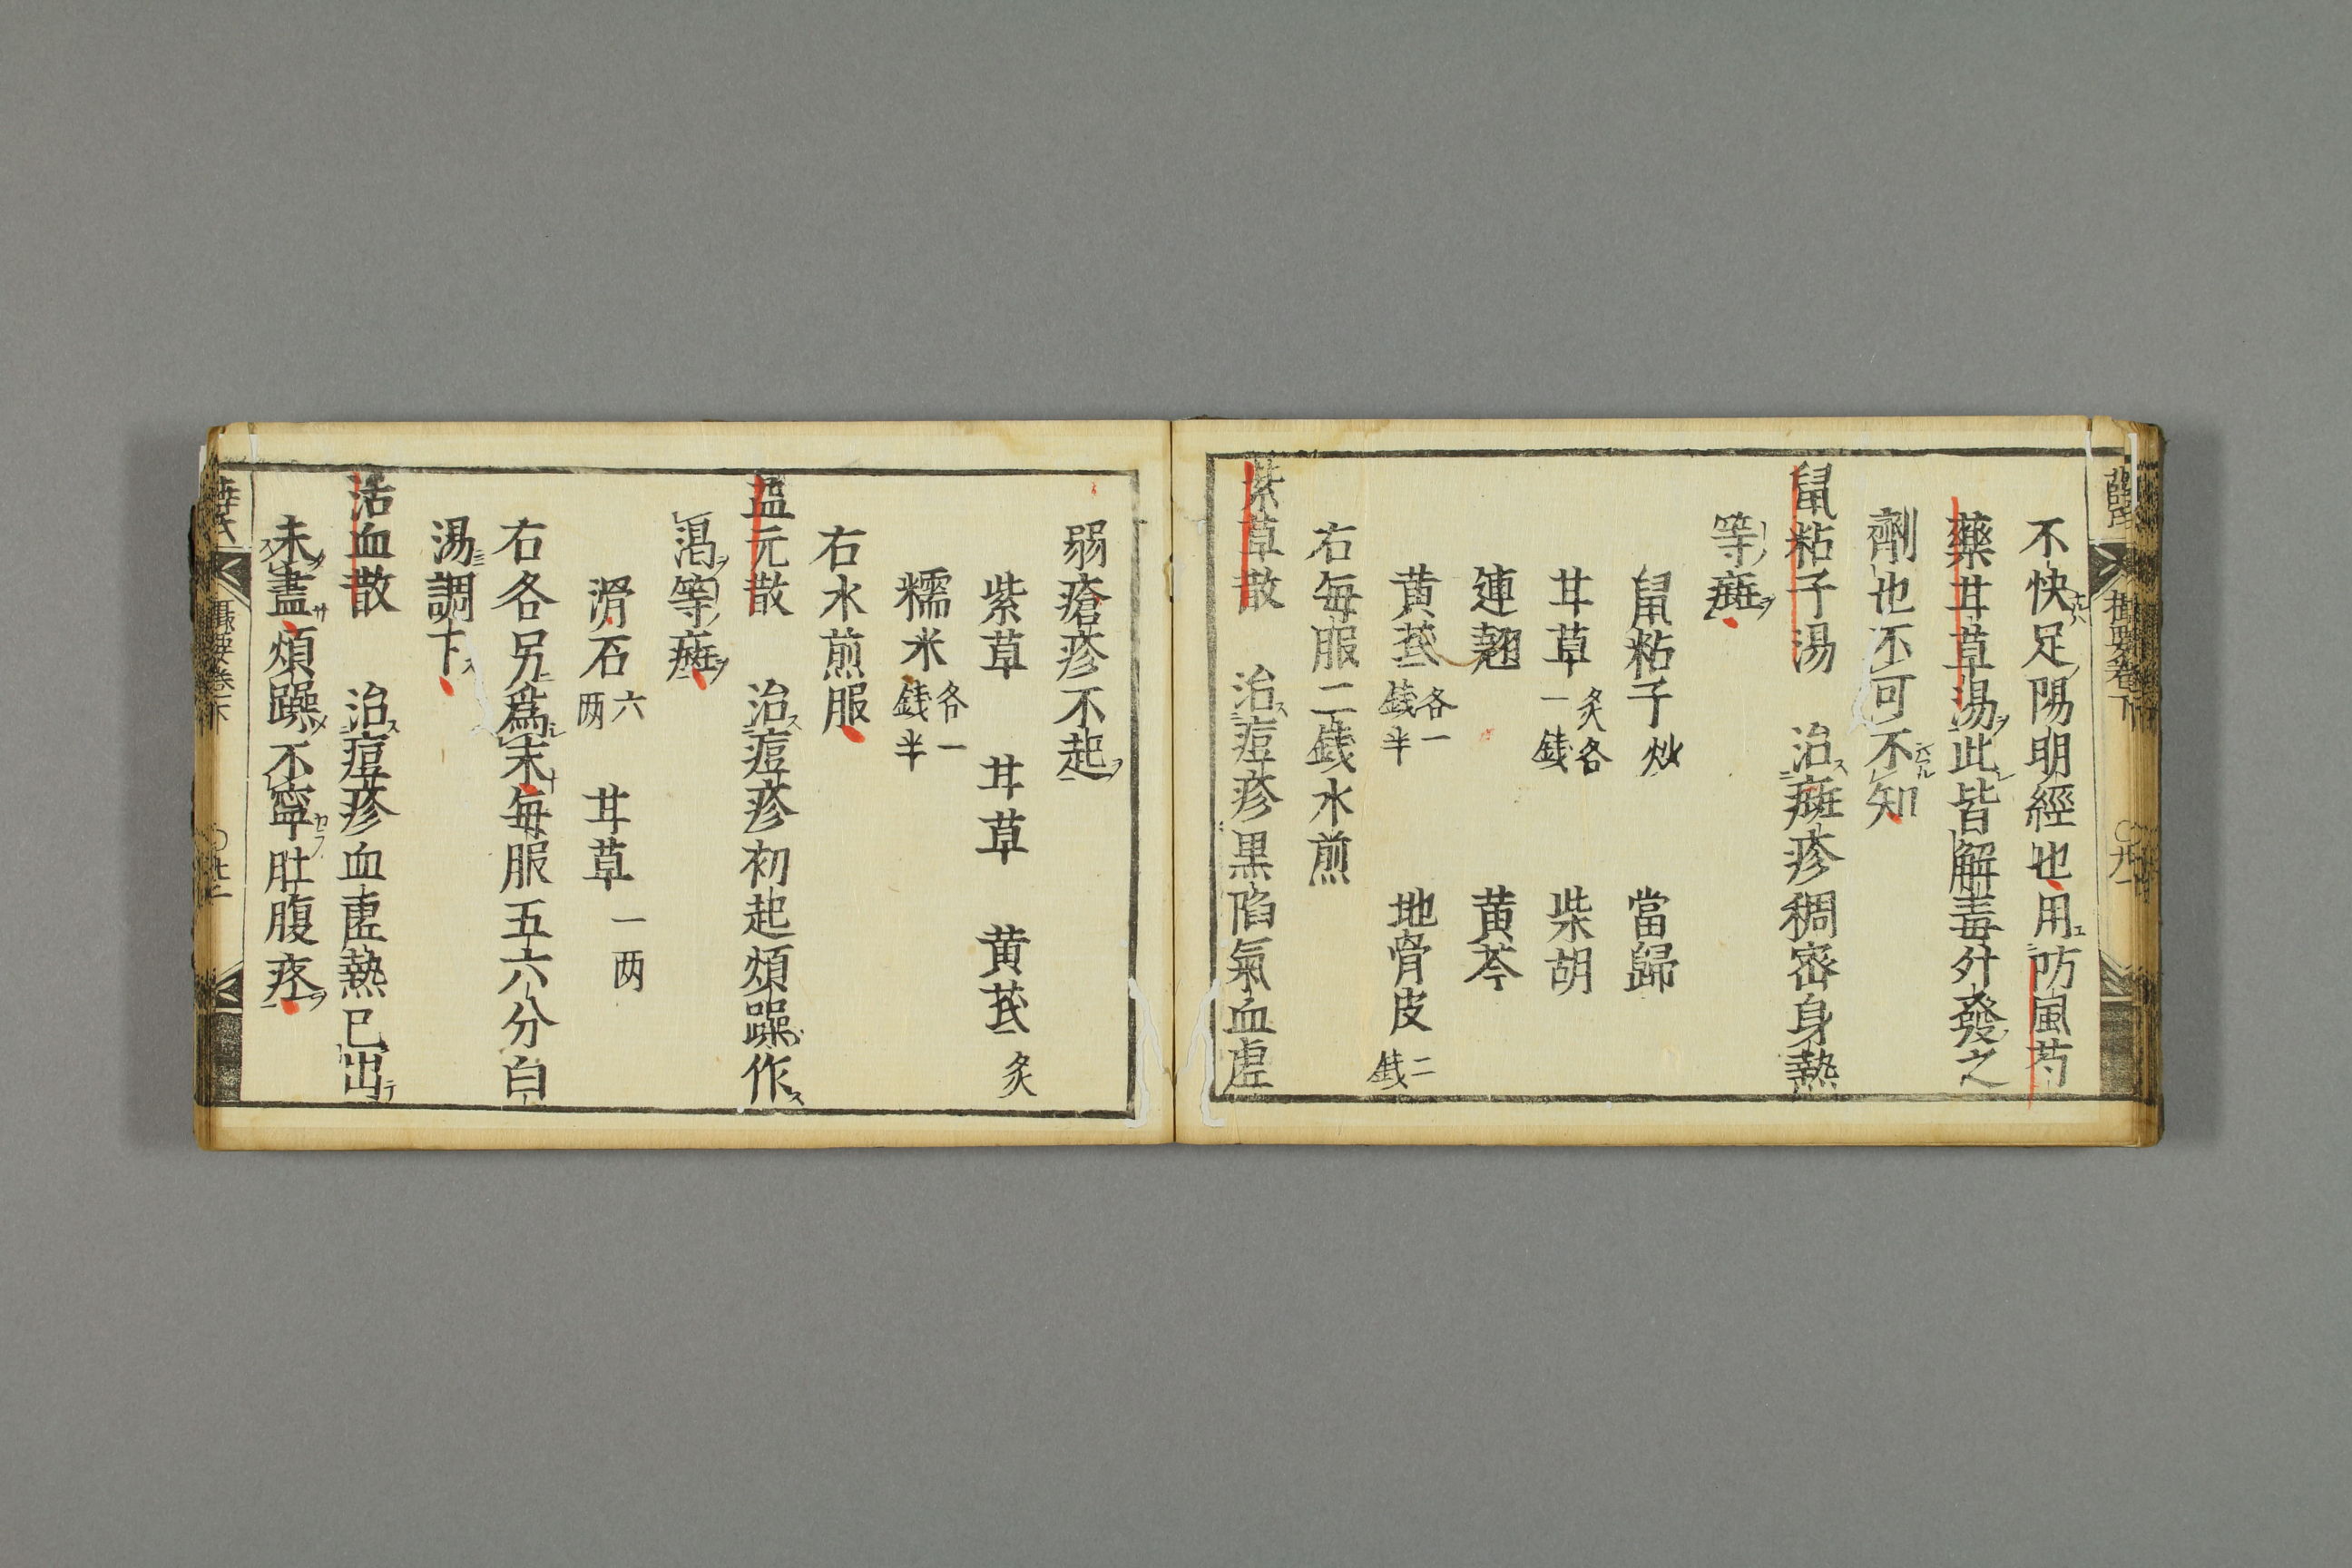 不快足陽明經也用防風芍
藥甘草湯此皆解毒外發之
劑也不可不知
鼠粘子湯　治癍疹稠密身熱
等癍
鼠粘子炒　當歸
甘草炙各一錢　柴胡
連翹　黄芩
黄芪各一錢半　地骨皮二錢
右每服二錢水煎
紫草散　治痘疹黑陷氣血虛
弱瘡疹不起
紫草　甘草　黄芪炙
糯米各一錢半
右水煎服
益元散　治痘疹初起煩躁作
渴等癍
滑石六两　甘草一两
右各另爲末每服五六分白
湯調下
活血散　治痘疹血虛熱已出
未盡煩躁不寧肚腹疼